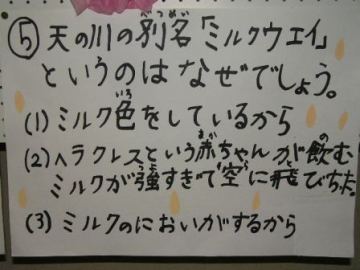 ⑤ 天の川の別名「ミルクウエイ」
というのはなぜでしょう。
(1) ミルク色をしているから
(2) ヘラクレスという赤ちゃんが飲む
ミルクが強すぎて空に飛びちった。
(3) ミルクのにおいがするから